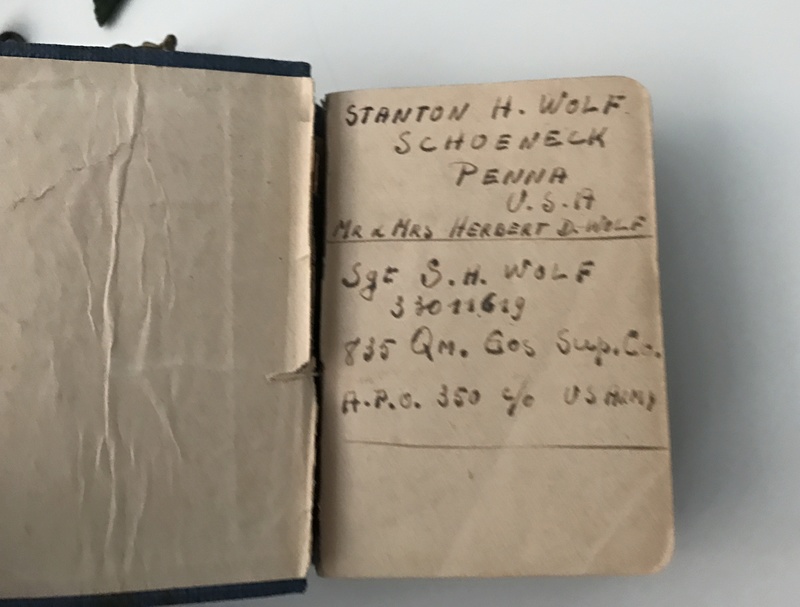 STANTON H. WOLF
SCHOENECK
PENNA
U.S.A
MR & MRS HERBERT D. WOLF
Sgt S.H. WOLF
33011619
835 Qm. Gas Sup. Co.
A.P.O. 350 c/o US ARMY